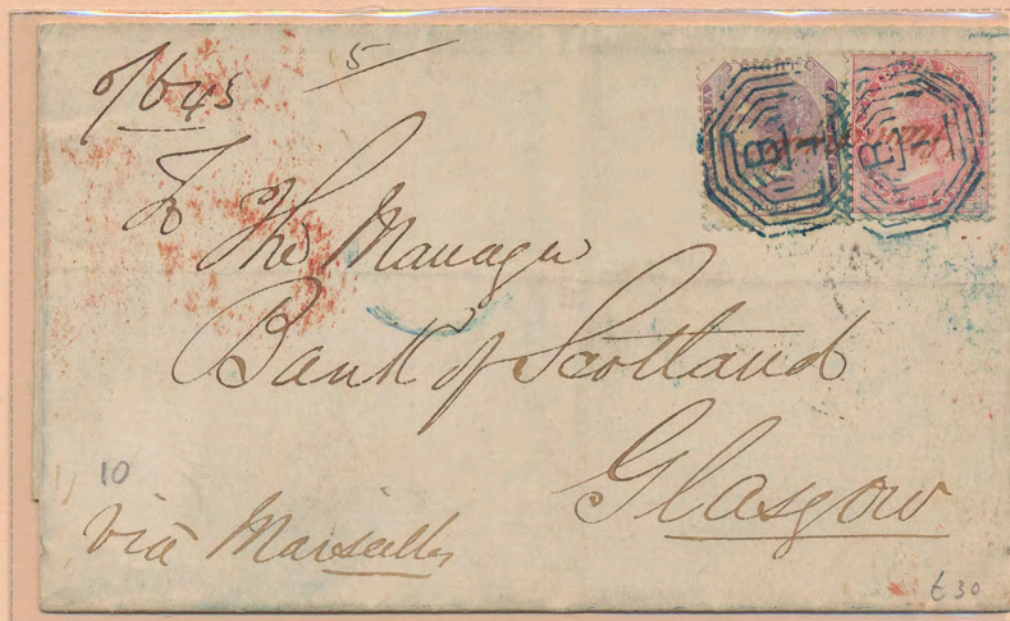 5
To
The Manager
Bank of Scotland
Glasgow
10
via Marseilles
£30
B
1
B
1